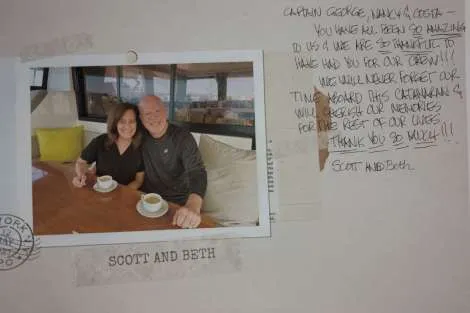 CAPTAIN GEORGE, NANCY & COSTA –
YOU HAVE ALL BEEN SO AMAZING
TO US & WE ARE SO THANKFUL TO
HAVE HAD YOU FOR OUR CREW!!!
WE WILL NEVER FORGET OUR
TIME ABOARD THIS CATAMARAN &
WILL CHERISH OUR MEMORIES
FOR THE REST OF OUR LIVES.
THANK YOU SO MUCH!!!
SCOTT AND Beth
SCOTT AND BETH
YORK